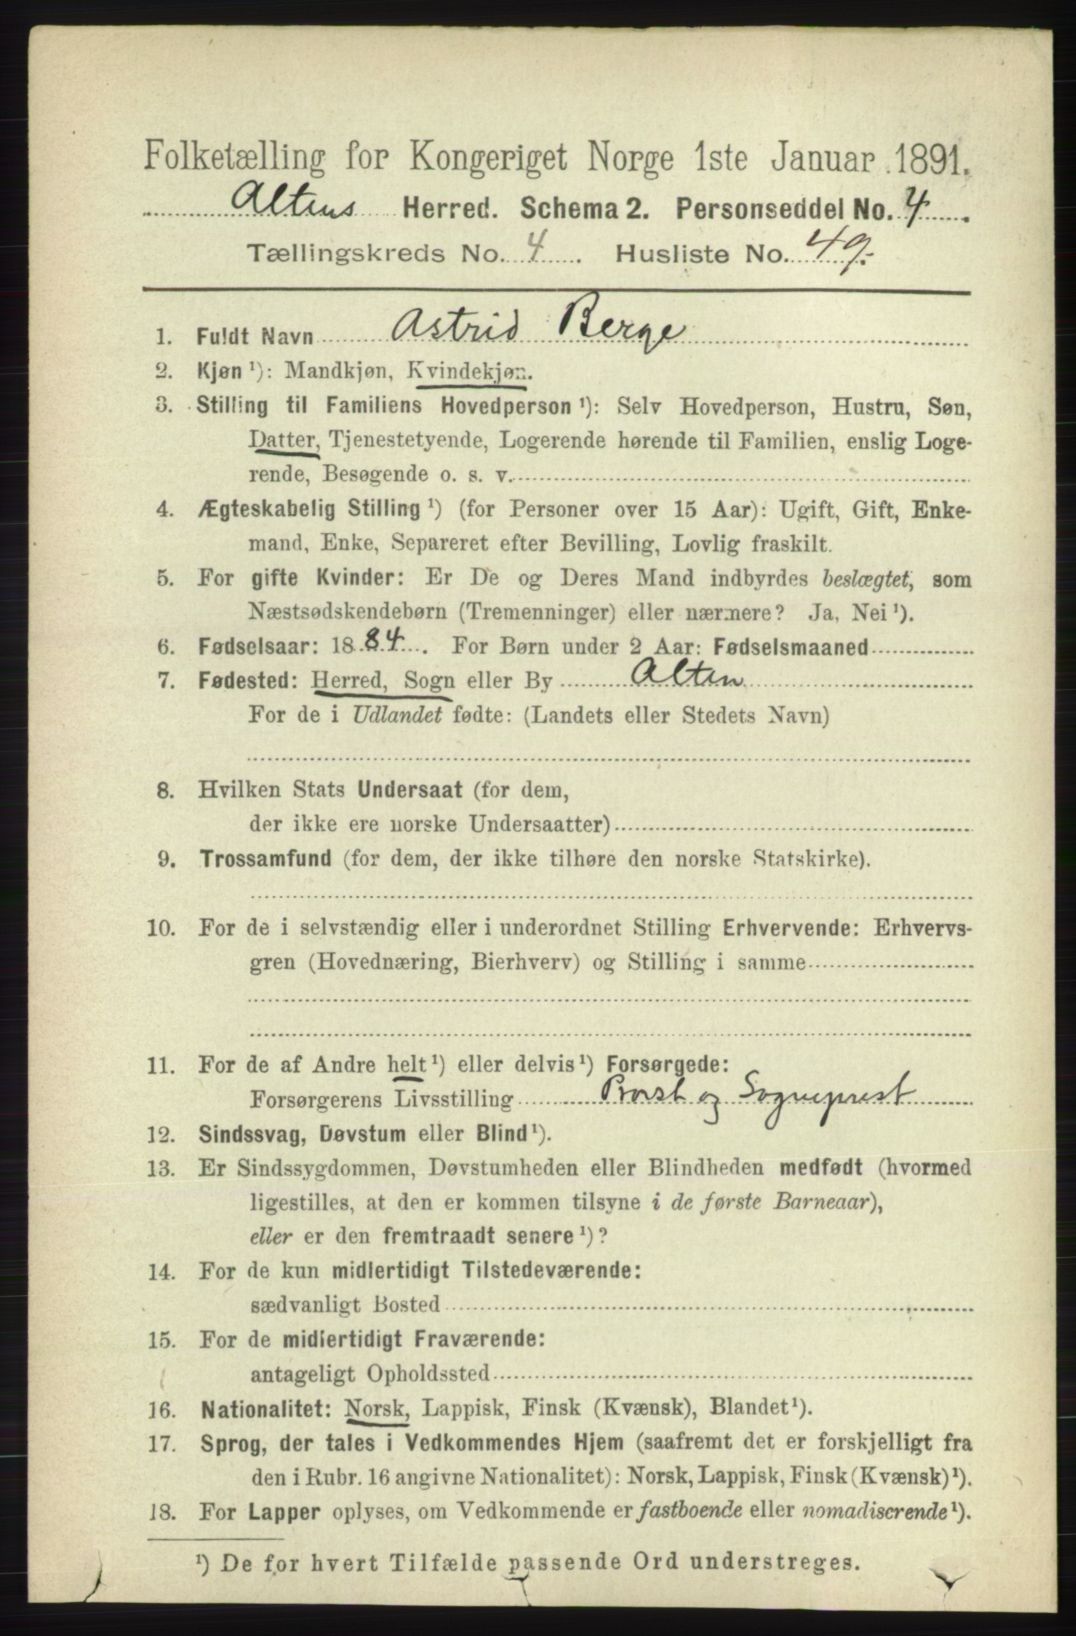 Folketælling for Kongeriget Norge 1ste Januar 1891.
Altens Herred. Schema 2. Personseddel No. 4.
Tællingskreds No. 4. Husliste No. 49.
1. Fuldt Navn Astrid Berge
2. Kjøn ¹): Mandkjøn, Kvindekjøn.
3. Stilling til Familiens Hovedperson ¹): Selv Hovedperson, Hustru, Søn,
Datter, Tjenestetyende, Logerende hørende til Familien, enslig Loge-
rende, Besøgende o. s. v.
4. Ægteskabelig Stilling ¹) (for Personer over 15 Aar): Ugift, Gift, Enke-
mand, Enke, Separeret efter Bevilling, Lovlig fraskilt.
5. For gifte Kvinder: Er De og Deres Mand indbyrdes beslægtet, som
Næstsødskendebørn (Tremenninger) eller nærmere? Ja, Nei ¹).
6. Fødselsaar: 1884. For Børn under 2 Aar: Fødselsmaaned
7. Fødested: Herred, Sogn eller By Alten
For de i Udlandet fødte: (Landets eller Stedets Navn)
8. Hvilken Stats Undersaat (for dem,
der ikke ere norske Undersaatter)
9. Trossamfund (for dem, der ikke tilhøre den norske Statskirke).
10. For de i selvstændig eller i underordnet Stilling Erhvervende: Erhvervs-
gren (Hovednæring, Bierhverv) og Stilling i samme
11. For de af Andre helt ¹) eller delvis ¹) Forsørgede:
Forsørgerens Livsstilling Provst og Sogneprest
12. Sindssvag, Døvstum eller Blind ¹).
13. Er Sindssygdommen, Døvstumheden eller Blindheden medfødt (hvormed
ligestilles, at den er kommen tilsyne i de første Barneaar),
eller er den fremtraadt senere ¹)?
14. For de kun midlertidigt Tilstedeværende:
sædvanligt Bosted
15. For de midlertidigt Fraværende:
antageligt Opholdssted
16. Nationalitet: Norsk, Lappisk, Finsk (Kvænsk), Blandet ¹).
17. Sprog, der tales i Vedkommendes Hjem (saafremt det er forskjelligt fra
den i Rubr. 16 angivne Nationalitet): Norsk, Lappisk, Finsk (Kvænsk) ¹).
18. For Lapper oplyses, om Vedkommende er fastboende eller nomadiserende ¹).
¹) De for hvert Tilfælde passende Ord understreges.